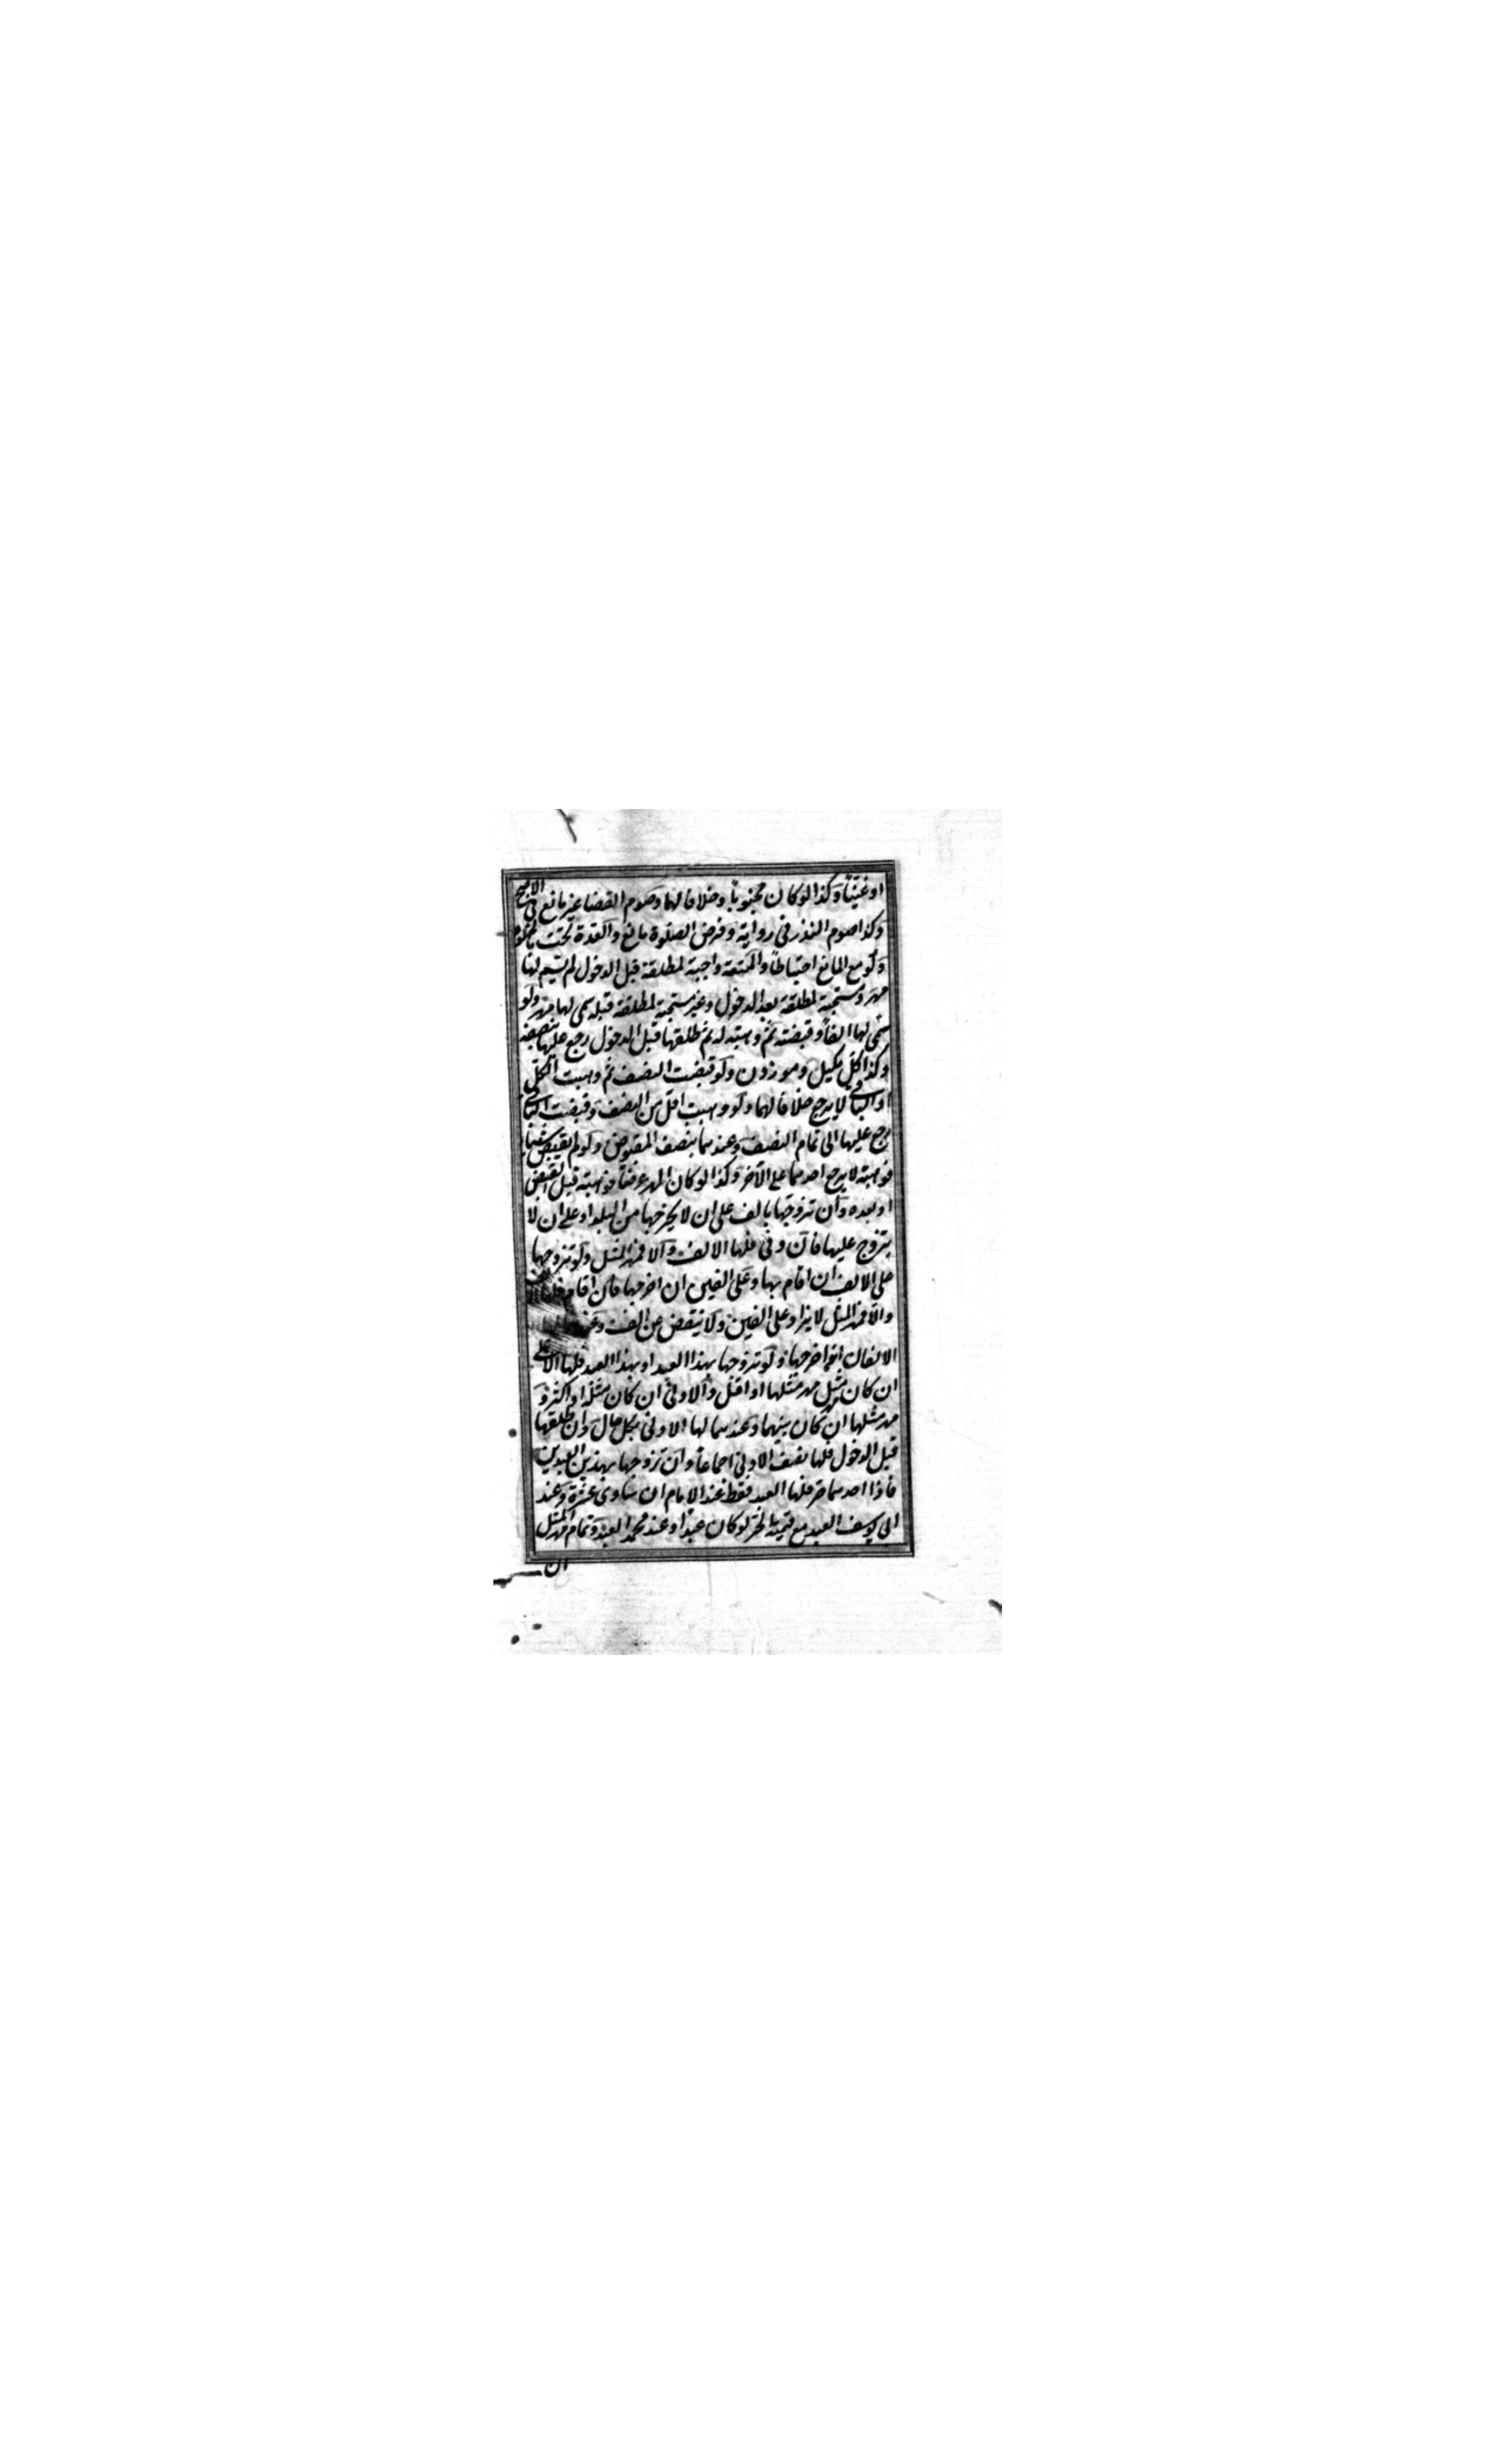 او عنينا وكذا لو كان مجبوبا وخلافا لهما وصوم القضا غير مانع في الاصح
وكذا صوم النذر في رواية وفرض الصلوة مانع والعدة تجب بالخلوة
ولو مع المانع احتياطا والمتعة واجبة لمطلقة قبل الدخول لم يسم لها
مهر ومستحبة لمطلقة بعد الدخول وغير مستحبة لمطلقة قبله سمى لها مهر ولو
سمى لها الفا وقبضته ثم وهبته له ثم طلقها قبل الدخول رجع عليها بنصفه
وكذا كل مكيل وموزون ولو قبضت النصف ثم وهبت الكل
او الباقي لا يرجع خلافا لهما ولو وهبت اقل من النصف وقبضت الباقي
يرجع عليها الى تمام النصف وعندهما بنصف المقبوض ولو لم تقبض شيئا
فوهبته لا يرجع احدهما على الآخر وكذا لو كان المهر عرضا فوهبته قبل القبض
او بعده وان تزوجها بالف على ان لا يخرجها من البلد او على ان لا
يتزوج عليها فان وفى فلها الالف والا فمهر المثل ولو تزوجها
على الالف ان اقام بها وعلى الفين ان اخرجها فان اقام فلها
والا فمهر المثل لا يزاد على الفين ولا ينقص عن الف
الالفان ان اخرجها ولو تزوجها بهذا العبد او بهذا العبد فلها الاعلى
ان كان مثل مهر مثلها او اقل والادنى ان كان مثله او اكثر و
مهر مثلها ان كان بينهما وعندهما لها الادنى بكل حال وان طلقها
قبل الدخول فلها نصف الادنى اجماعا وان تزوجها بهذين العبدين
فاذا احدهما حر فلها العبد فقط عند الامام ان ساوى عشرة وعند
ابي يوسف العبد مع قيمة الحر لو كان عبدا وعند محمد العبد وتمام مهر المثل
ان